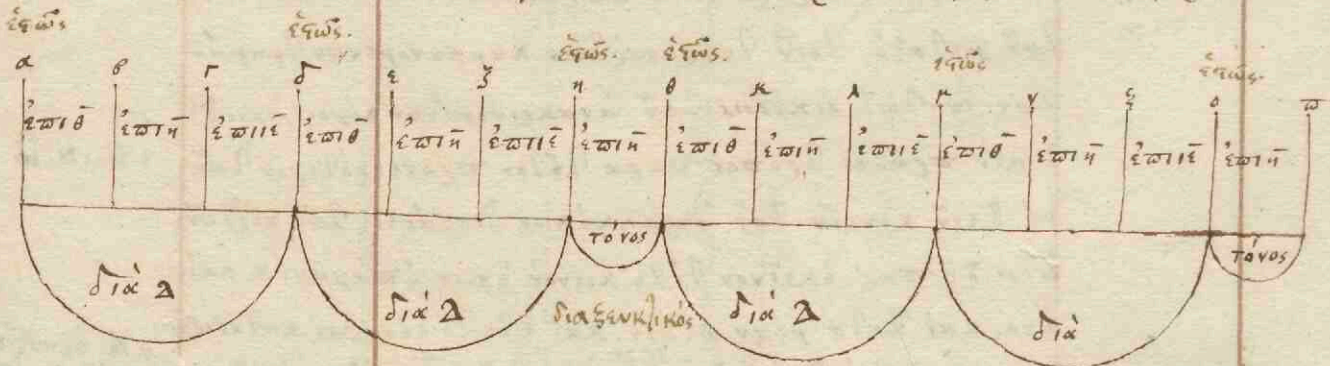 ἑστὼς ἑστὼς. ἑστὼς. ἑστὼς. ἑστὼς ἑστὼς.
α β γ δ ε ζ η θ κ λ μ ν ξ ο π
ἐπιθ̄ ἐπιη̄ ἐπιιε̄ ἐπιθ̄ ἐπιη̄ ἐπιιε̄ ἐπιη̄ ἐπιθ̄ ἐπιη̄ ἐπιιε̄ ἐπιθ̄ ἐπιη̄ ἐπιιε̄ ἐπιη̄
τόνος τόνος
διὰ Δ διὰ Δ διαζευκτικός διὰ Δ διὰ